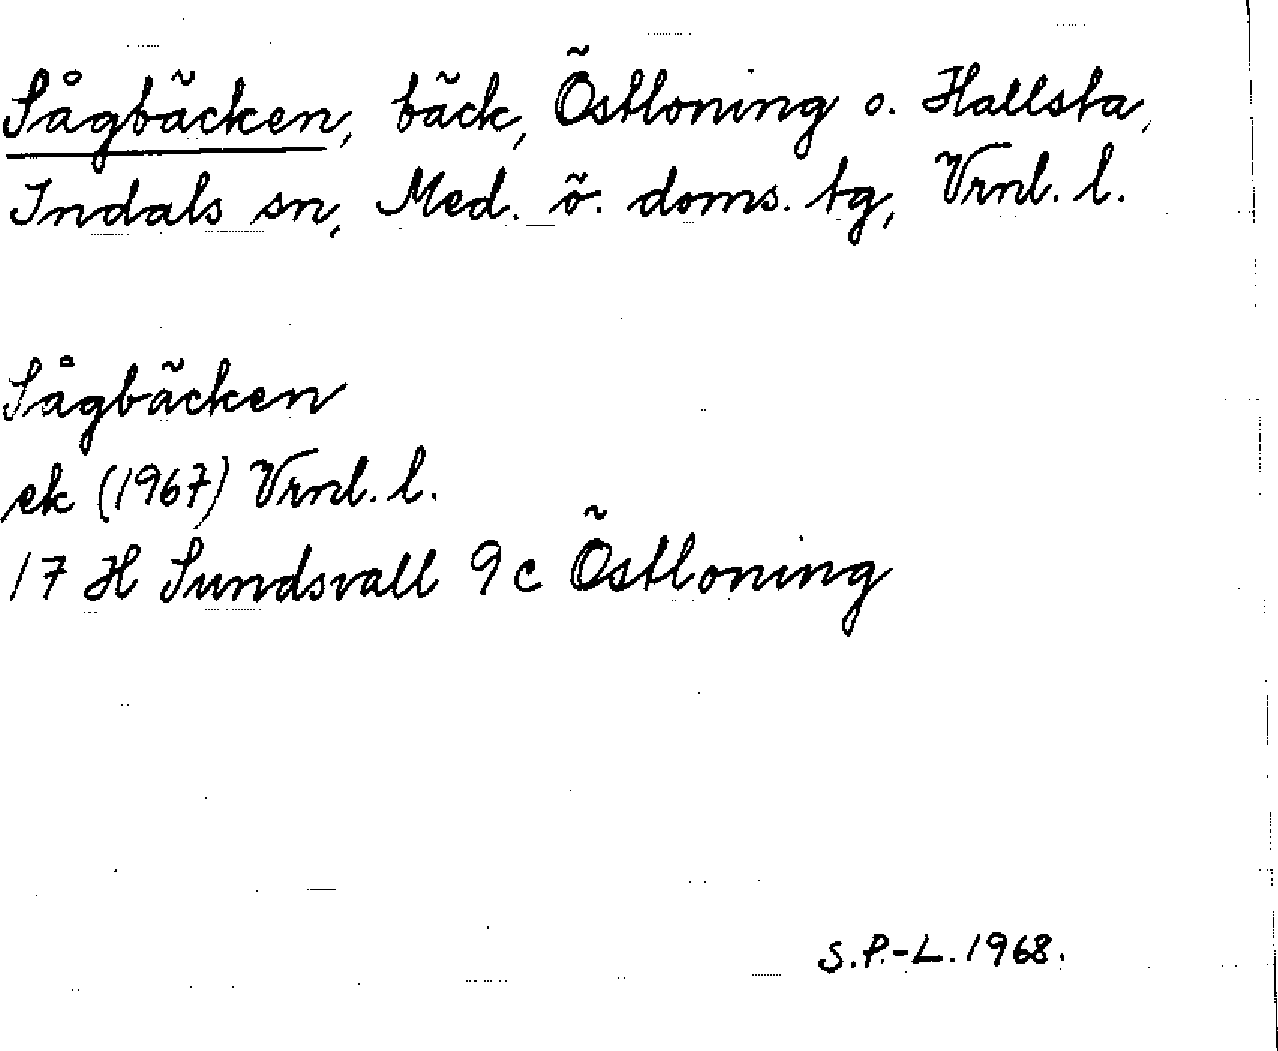 Sågbäcken, bäck, Östloning o. Hallsta,
Indals sn, Med. ö. doms. tg, Vrnl. l.
Sågbäcken
ek (1967) Vrnl. l.
17 H Sundsvall 9 c Östloning
S.P.-L. 1968.